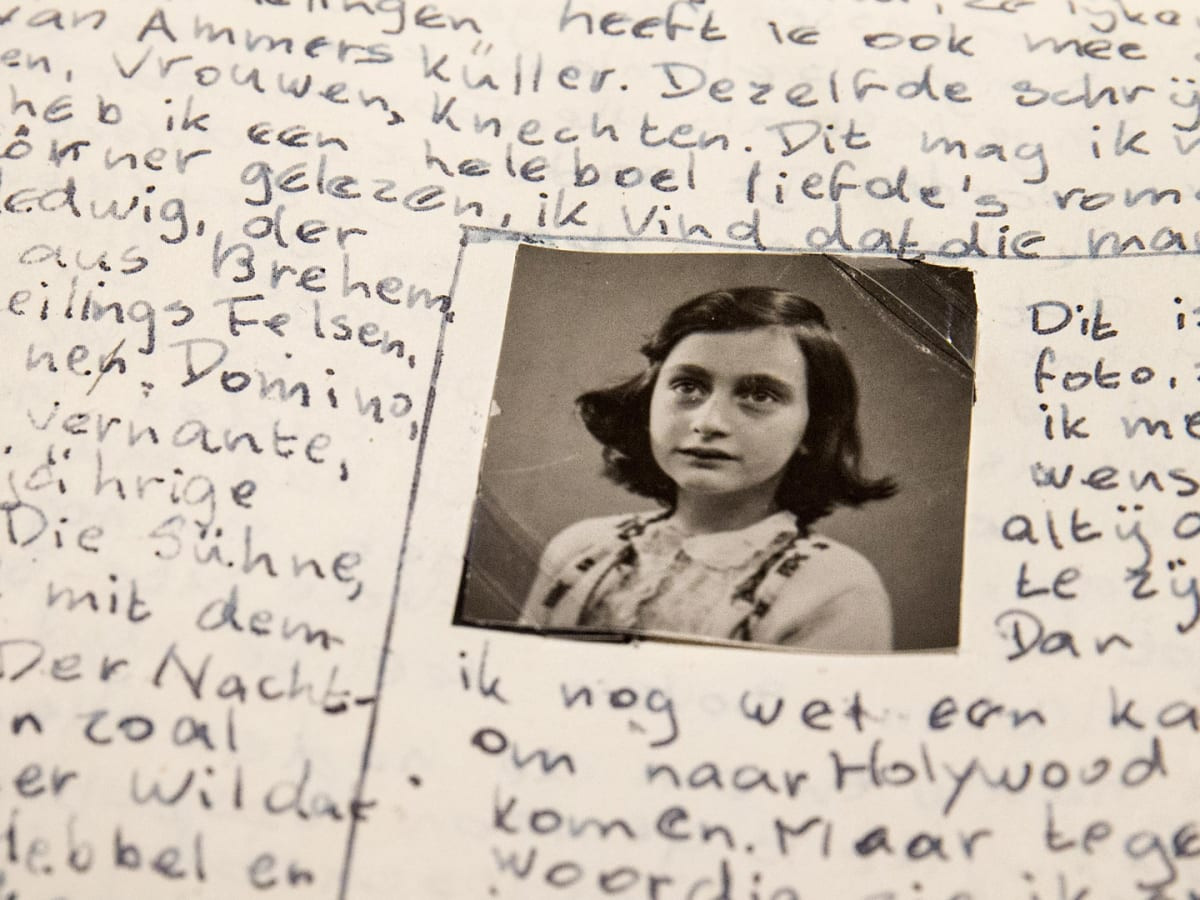 van Ammers Küller. Dezelfde
heeft ie ook mee
en, vrouwen, Knechten. Dit mag ik
heb ik een heleboel liefde's rom
örner gelezen, ik vind dat die
edwig, der
aus Brehem
eilings Felsen,
nen. Domino,
vernante,
jährige
Die Sühne,
mit dem
Der Nacht-
n zoal
er Wildat
Hebbel en
Dit is
foto,
ik me
wens
altij
te zij
Dan
ik nog wet een ka
om naar Holywood
komen. Maar tege
woordig zie ik